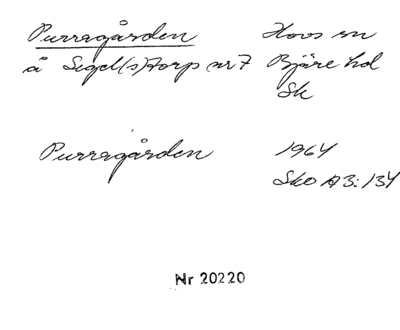 Purragården Hovs sn
å Segel(s)torp nr 7 Bjäre hd
Sk
Purragården 1964
Sko A3:134
Nr 20220